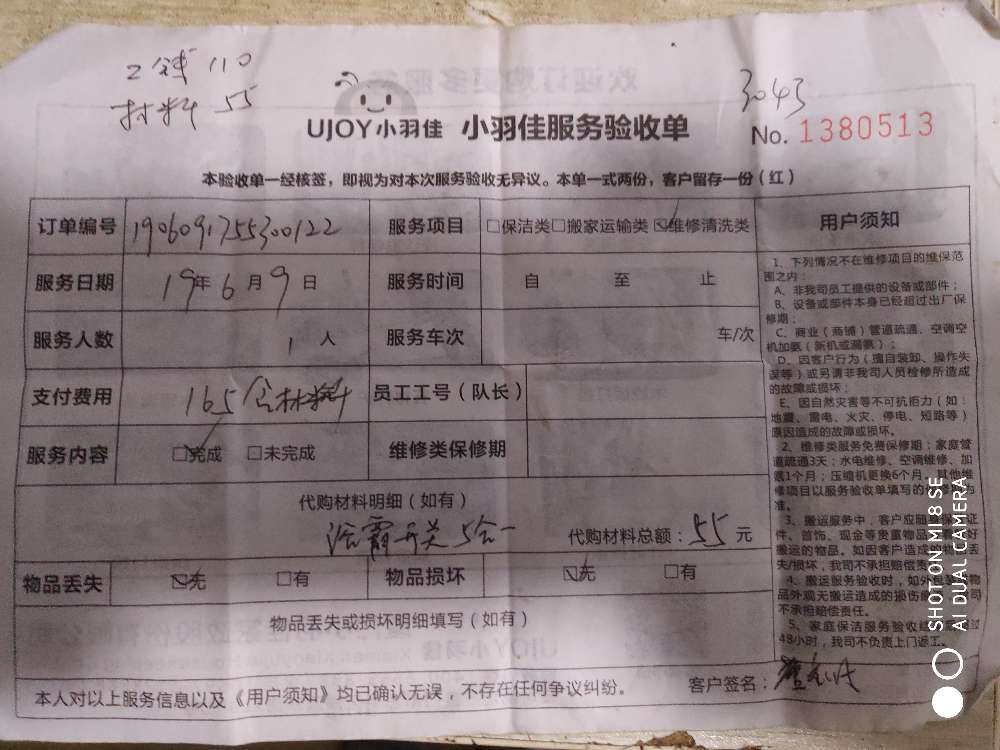 工钱 110
材料 55
3043
UJOY小羽佳 小羽佳服务验收单
No. 1380513
本验收单一经核签，即视为对本次服务验收无异议。本单一式两份，客户留存一份（红）
订单编号 19060917553001 22 服务项目 □保洁类□搬家运输类☑维修清洗类
服务日期 19年6月9日 服务时间 自 至 止
服务人数 1 人 服务车次 车/次
支付费用 165 含材料 员工工号（队长）
服务内容 ☑完成 □未完成 维修类保修期
代购材料明细（如有）
浴霸开关 5合一 代购材料总额：55 元
物品丢失 ☑无 □有 物品损坏 ☑无 □有
物品丢失或损坏明细填写（如有）
本人对以上服务信息以及《用户须知》均已确认无误，不存在任何争议纠纷。 客户签名：
用户须知
1、下列情况不在维修项目的维保范
围之内：
A、非我司员工提供的设备或部件；
B、设备或部件本身已经超过出厂保
修期；
C、商业（商铺）管道疏通、空调空
机加氨（新机或漏氨）；
D、因客户行为（擅自装卸、操作失
误等）或另请非我司人员检修所造成
的故障或损坏；
E、因自然灾害等不可抗拒力（如：
地震、雷电、火灾、停电、短路等）
原因造成的故障或损坏。
2、维修类服务免费保修期：家庭管
道疏通3天；水电维修、空调维修、加
氨1个月；压缩机更换6个月，其他维
修项目以服务验收单填写的为
准。
3、搬运服务中，客户应证
件、首饰、现金等贵重物品好
搬运的物品。如因客户造成丢
失/损坏，我司不承担赔偿责
4、搬运服务验收时，如外包装物
品外观无搬运造成的损伤司
不承担赔偿责任。
5、家庭保洁服务验收过
48小时，我司不负责上门返工。
SHOT ON MI 8 SE
AI DUAL CAMERA